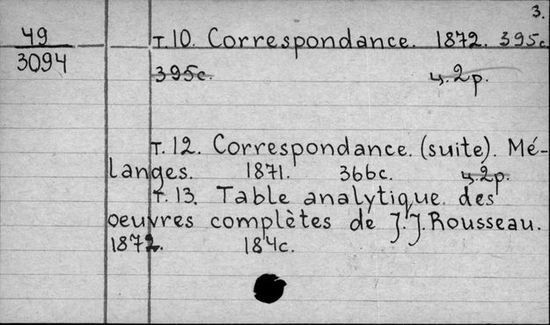 3.
49
3094
т.10. Correspondance. 1872. 395с.
395с. ц.2р.
т.12. Correspondance. (suite). Mé-
langes. 1871. 366с. ц.2р.
т.13. Table analytique des
oeuvres complètes de J.J.Rousseau.
1872. 184с.